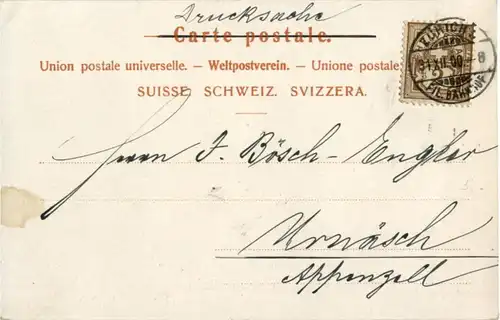 Drucksache
Carte postale.
Union postale universelle. - Weltpostverein. - Unione postale
SUISSE. SCHWEIZ. SVIZZERA.
ZÜRICH
31.XII.00
8
FIL. BAHNHOF
Herrn J. Bösch-Engler
Urnäsch
Appenzell